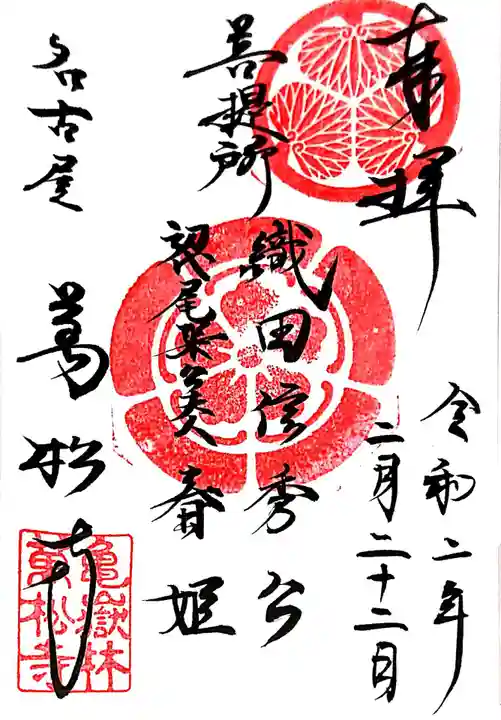 奉拝
令和二年
二月二十二日
菩提所
織田信秀公
尾張 夫人 春姫
名古屋
萬松寺
亀嶽林
萬松寺